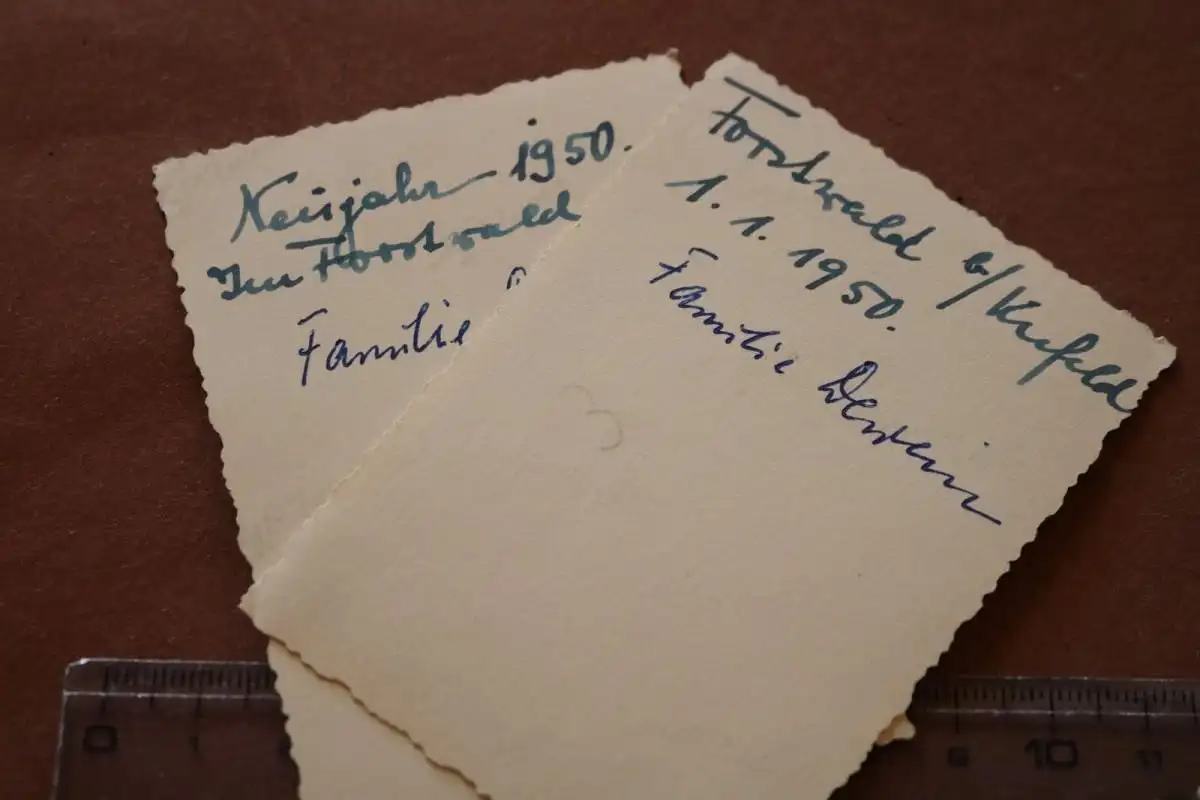 Neujahr 1950.
Im Forstwald
Familie
Forstwald b/Krefeld
1. 1. 1950.
Familie
3
0 1
9 10 11